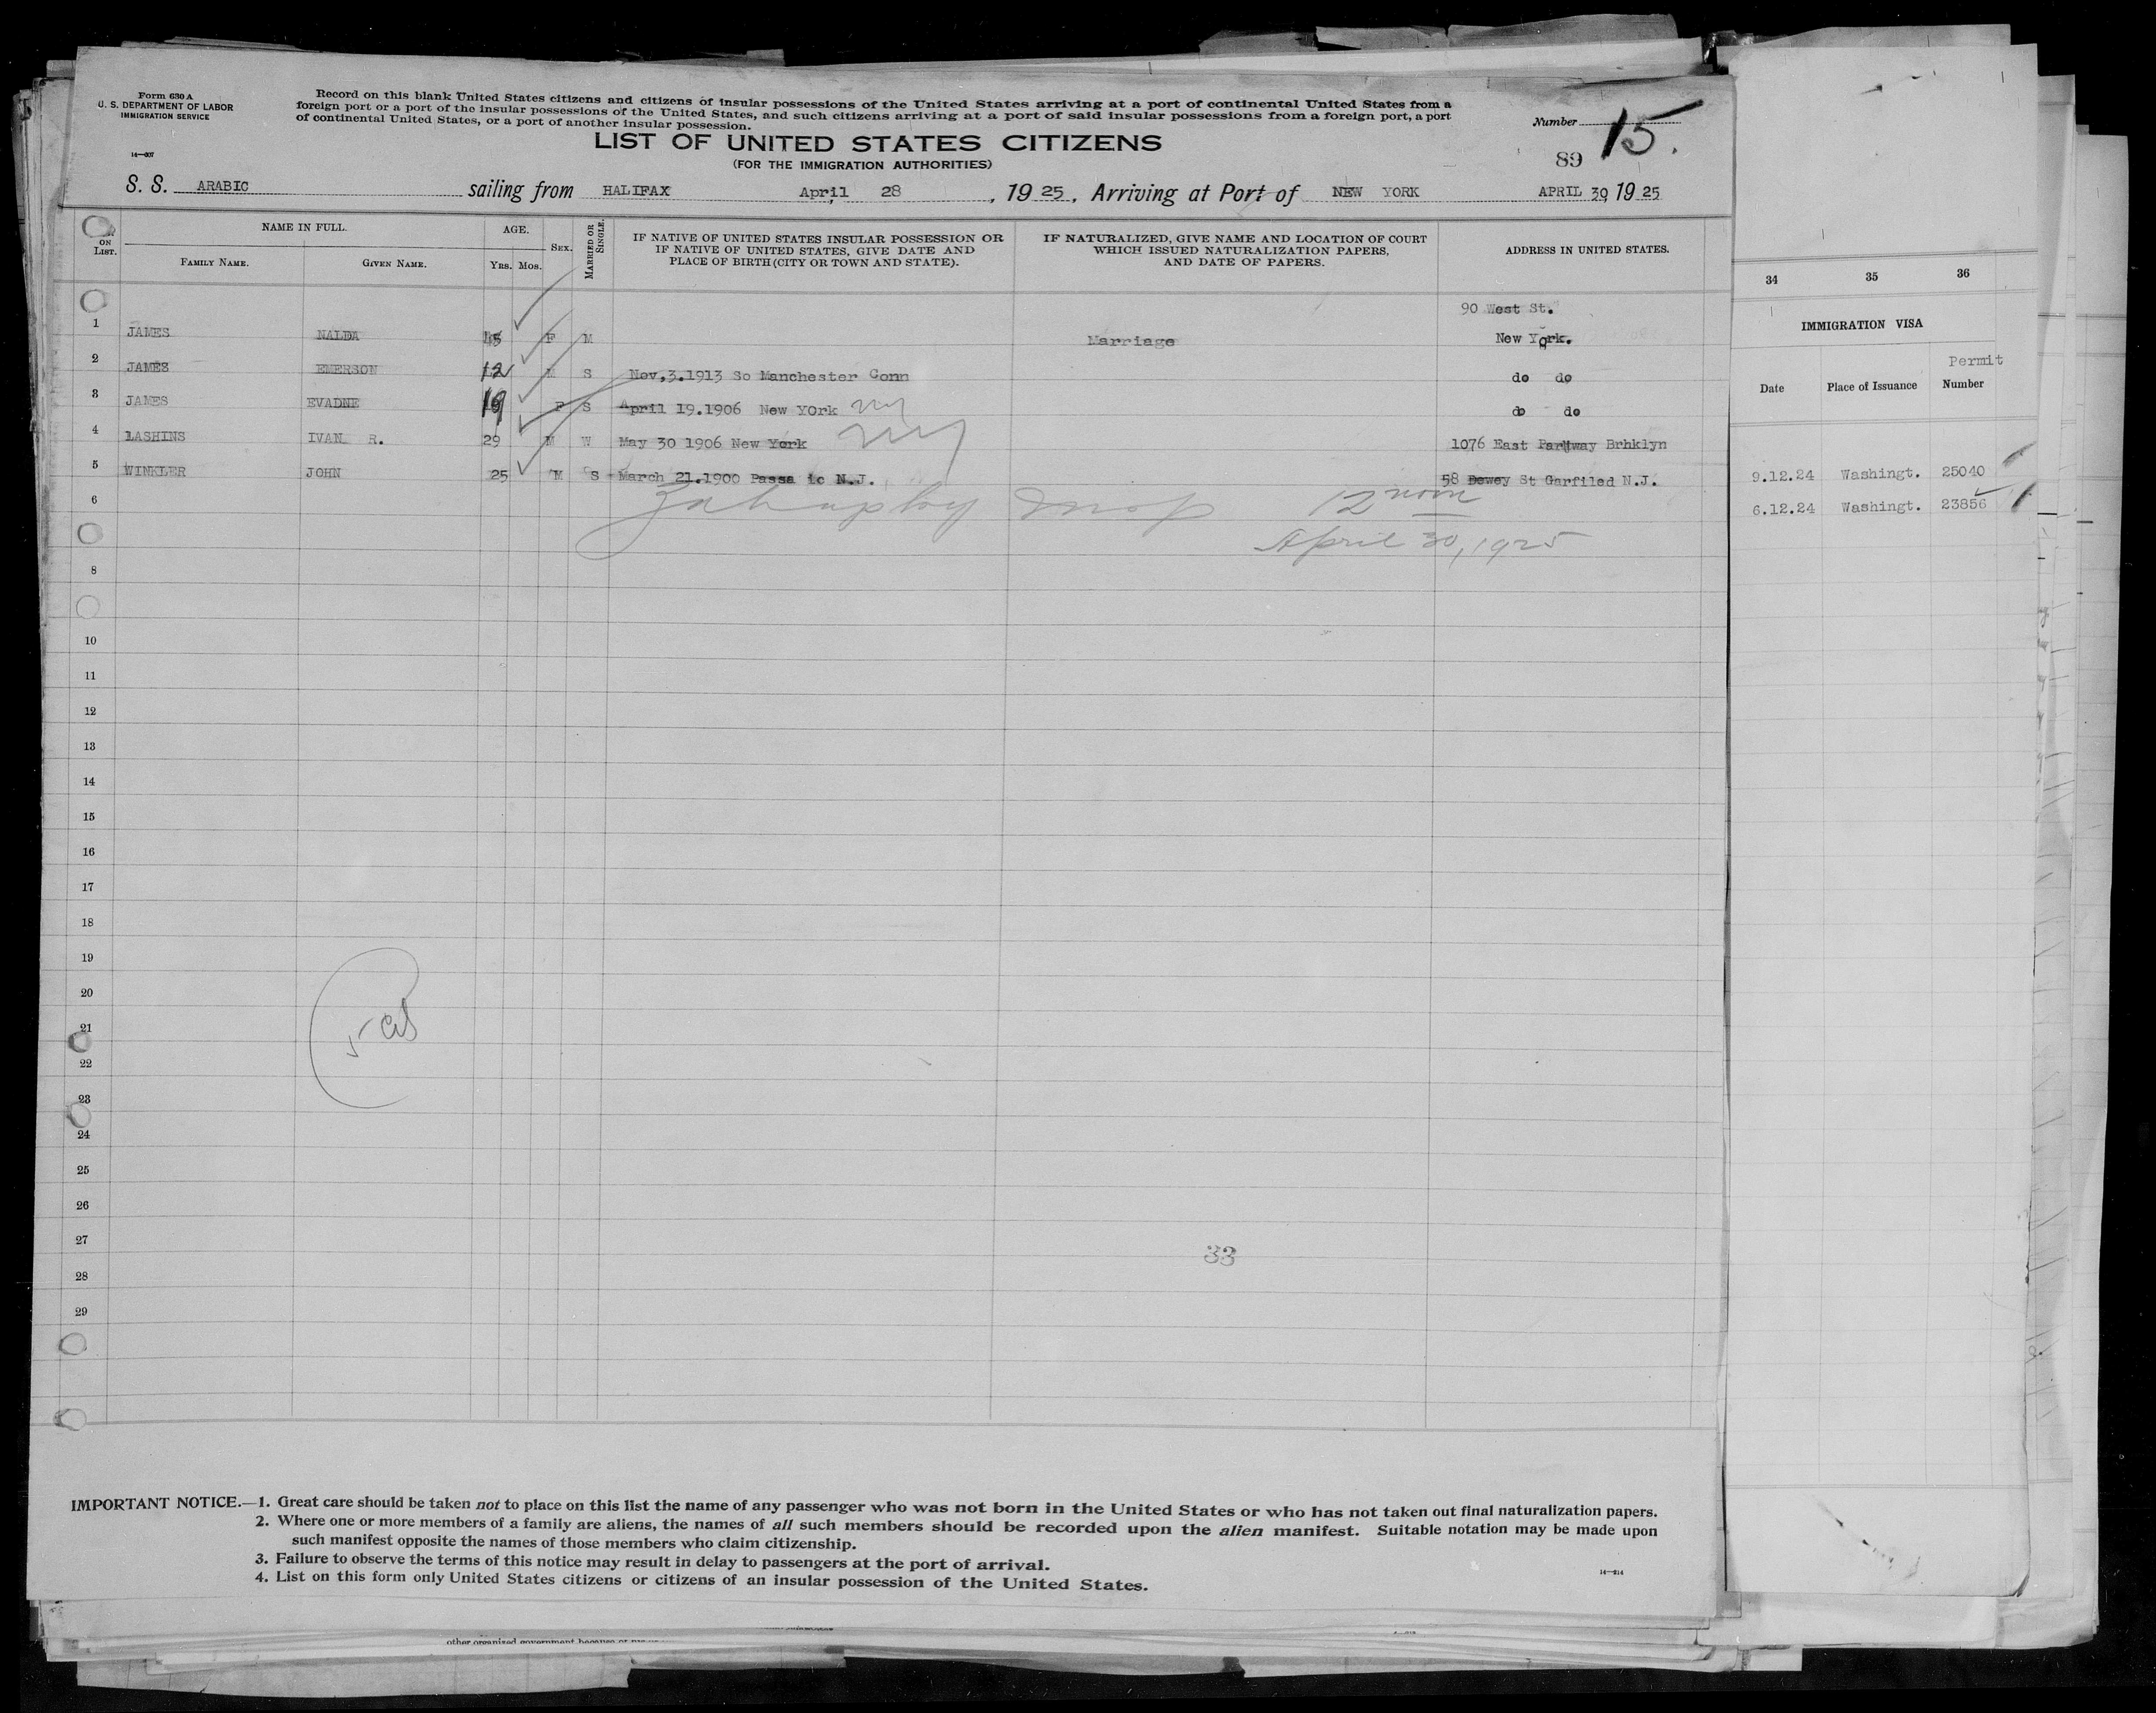 Form 630 A
U. S. DEPARTMENT OF LABOR
IMMIGRATION SERVICE
14—607
Record on this blank United States citizens and citizens of insular possessions of the United States arriving at a port of continental United States from a
foreign port or a port of the insular possessions of the United States, and such citizens arriving at a port of said insular possessions from a foreign port, a port
of continental United States, or a port of another insular possession.
LIST OF UNITED STATES CITIZENS
(FOR THE IMMIGRATION AUTHORITIES)
Number 15.
89
S. S. ARABIC sailing from HALIFAX April 28, 1925, Arriving at Port of NEW YORK APRIL 30, 1925
ON LIST. NAME IN FULL. FAMILY NAME. GIVEN NAME. AGE. YRS. MOS. SEX. MARRIED OR SINGLE.
IF NATIVE OF UNITED STATES INSULAR POSSESSION OR
IF NATIVE OF UNITED STATES, GIVE DATE AND
PLACE OF BIRTH (CITY OR TOWN AND STATE).
IF NATURALIZED, GIVE NAME AND LOCATION OF COURT
WHICH ISSUED NATURALIZATION PAPERS,
AND DATE OF PAPERS.
ADDRESS IN UNITED STATES.
90 West St.
1 JAMES NALDA 45 F M Marriage New York.
2 JAMES EMERSON 12 M S Nov,3.1913 So Manchester Conn do do
3 JAMES EVADNE 19 F S April 19.1906 New YOrk ny do do
4 LASHINS IVAN R. 29 M W May 30 1906 New York ny 1076 East Parkway Brhklyn
5 WINKLER JOHN 25 M S March 21.1900 Passa ic N.J. 58 Dewey St Garfiled N.J.
6
12 noon
April 30, 1925
8
10
11
12
13
14
15
16
17
18
19
20
21
22
23
24
25
26
27
28
29
33
34 35 36
IMMIGRATION VISA
Permit
Date Place of Issuance Number
9.12.24 Washingt. 25040
6.12.24 Washingt. 23856
IMPORTANT NOTICE.—1. Great care should be taken not to place on this list the name of any passenger who was not born in the United States or who has not taken out final naturalization papers.
2. Where one or more members of a family are aliens, the names of all such members should be recorded upon the alien manifest. Suitable notation may be made upon
such manifest opposite the names of those members who claim citizenship.
3. Failure to observe the terms of this notice may result in delay to passengers at the port of arrival.
4. List on this form only United States citizens or citizens of an insular possession of the United States.
14—214